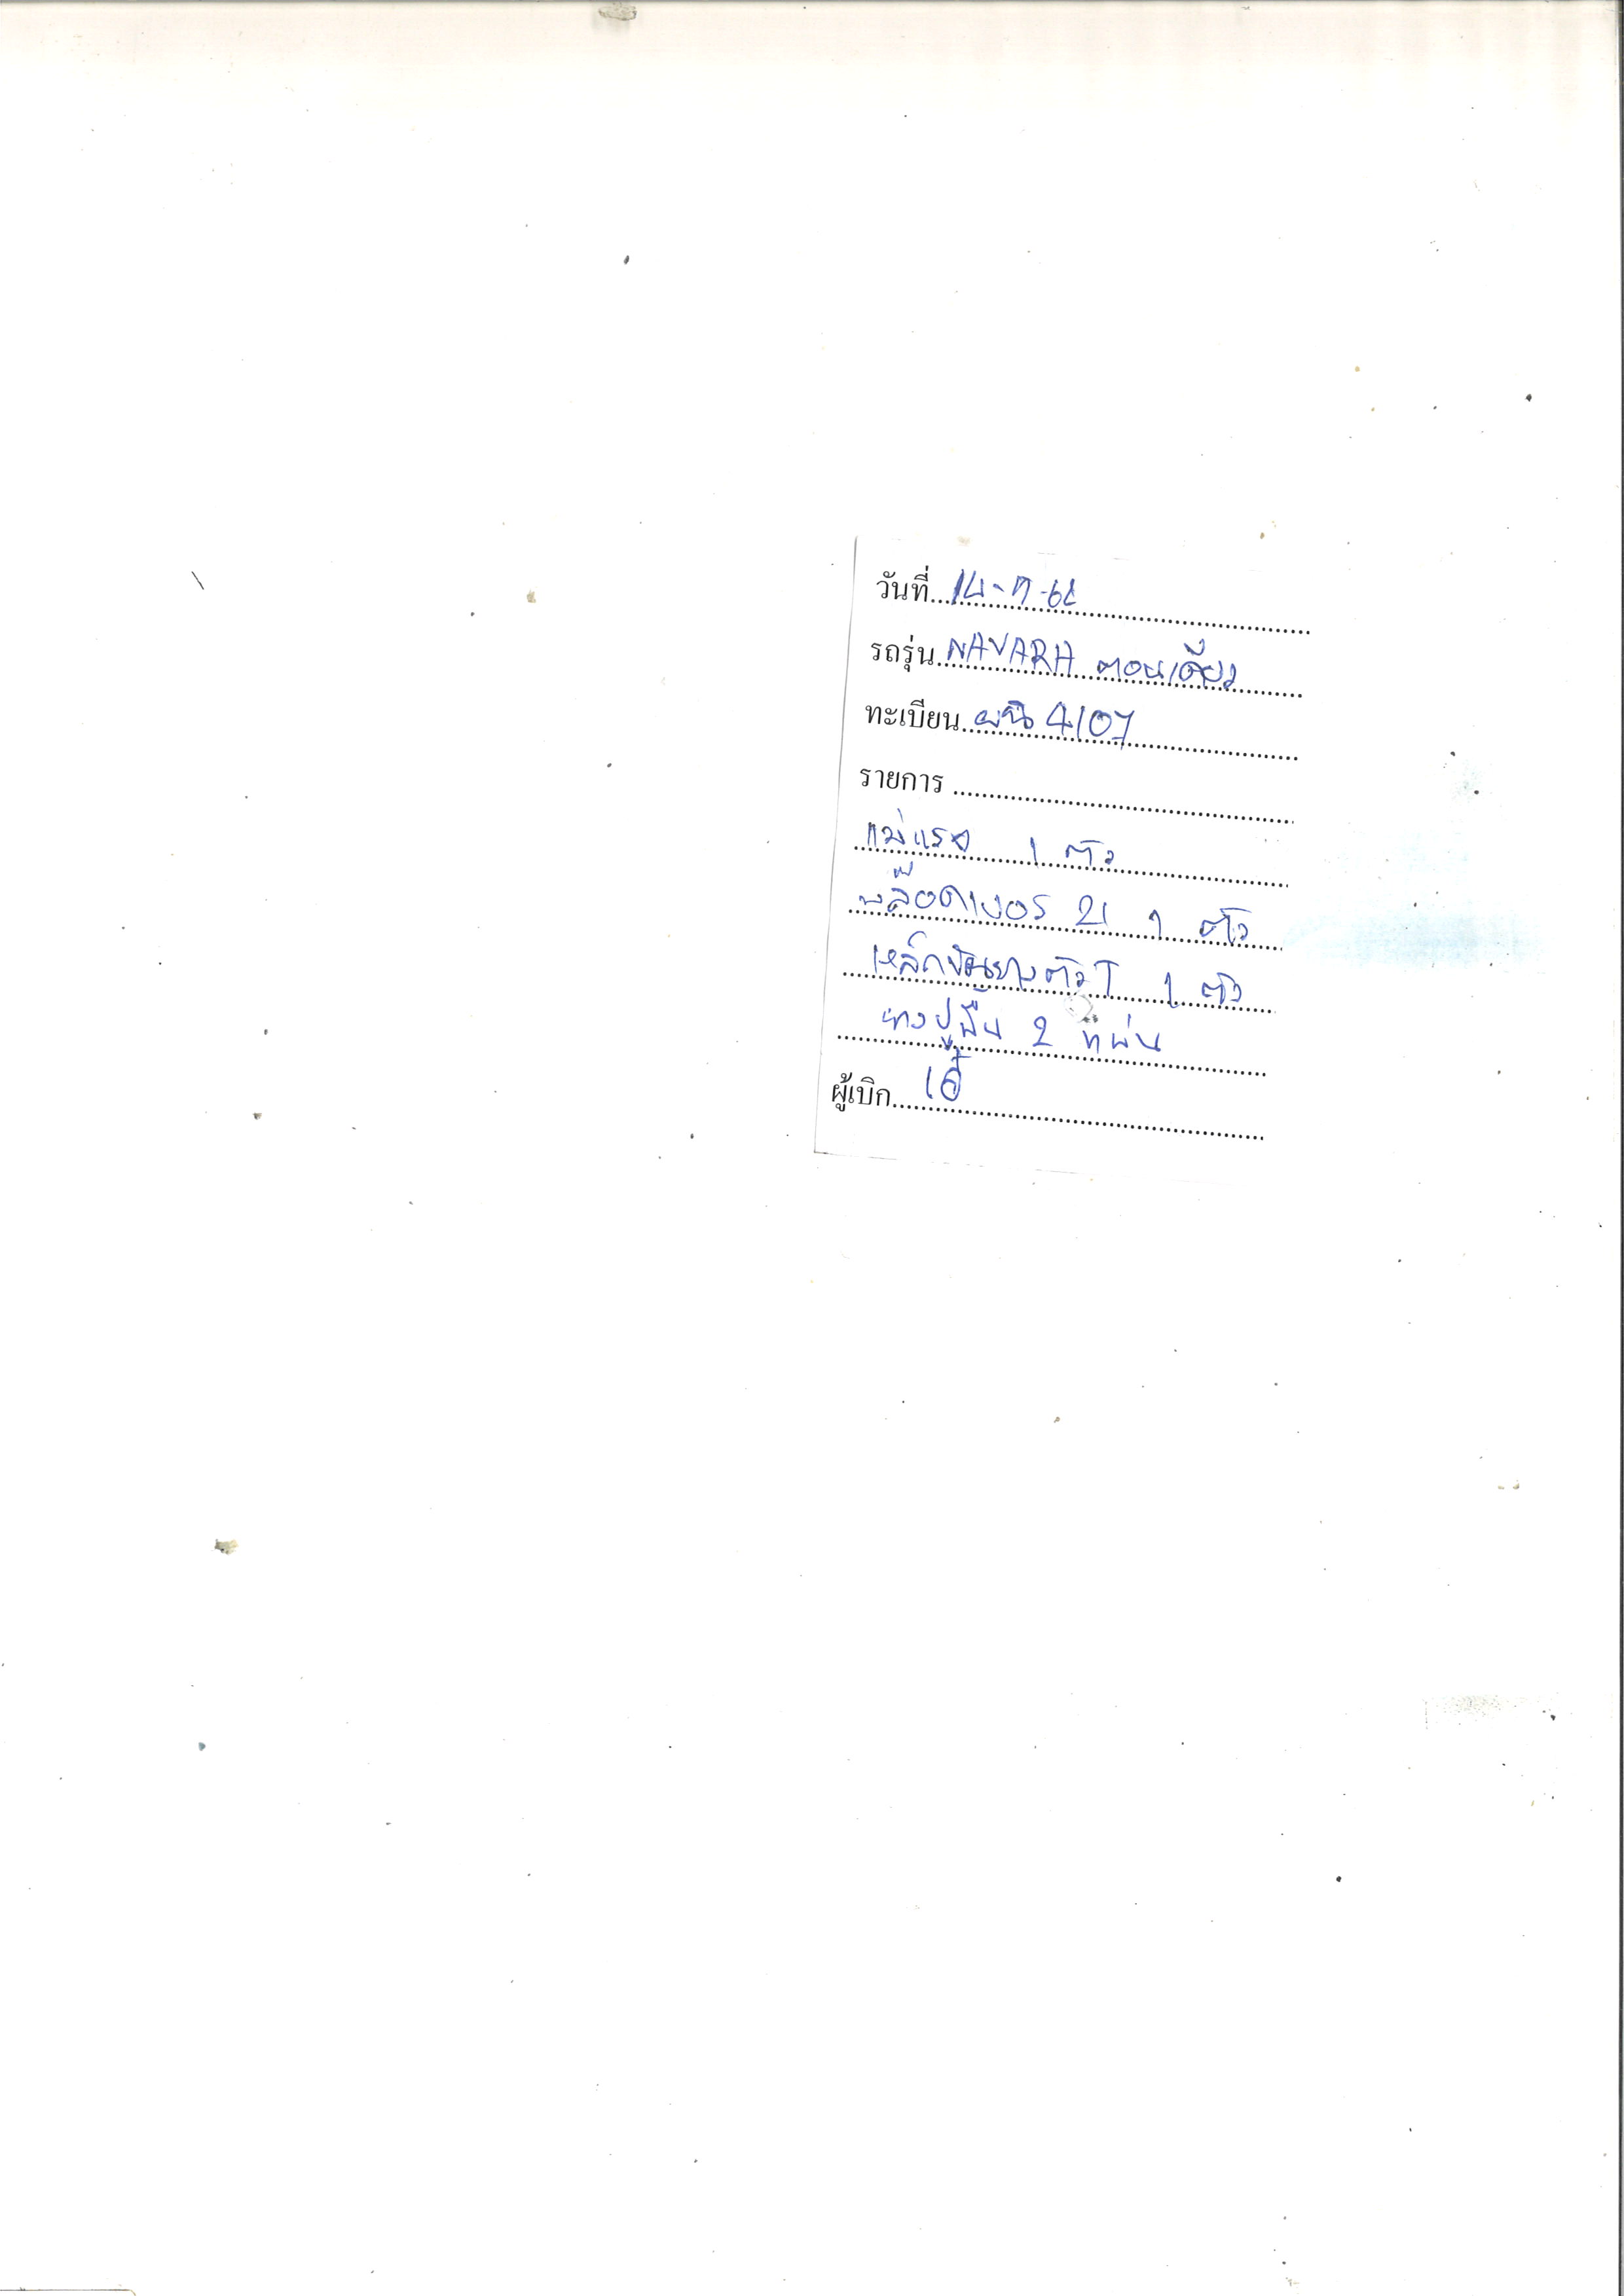 วันที่ 14-7-61
รถรุ่น NAVARA ตอนเดียว
ทะเบียน ผน 4107
รายการ
แม่แรง 1 ตัว
บล๊อคเบอร์ 21 1 ตัว
เหล็กขันยางตัว T 1 ตัว
ยางปูพื้น 2 แผ่น
ผู้เบิก เอ้